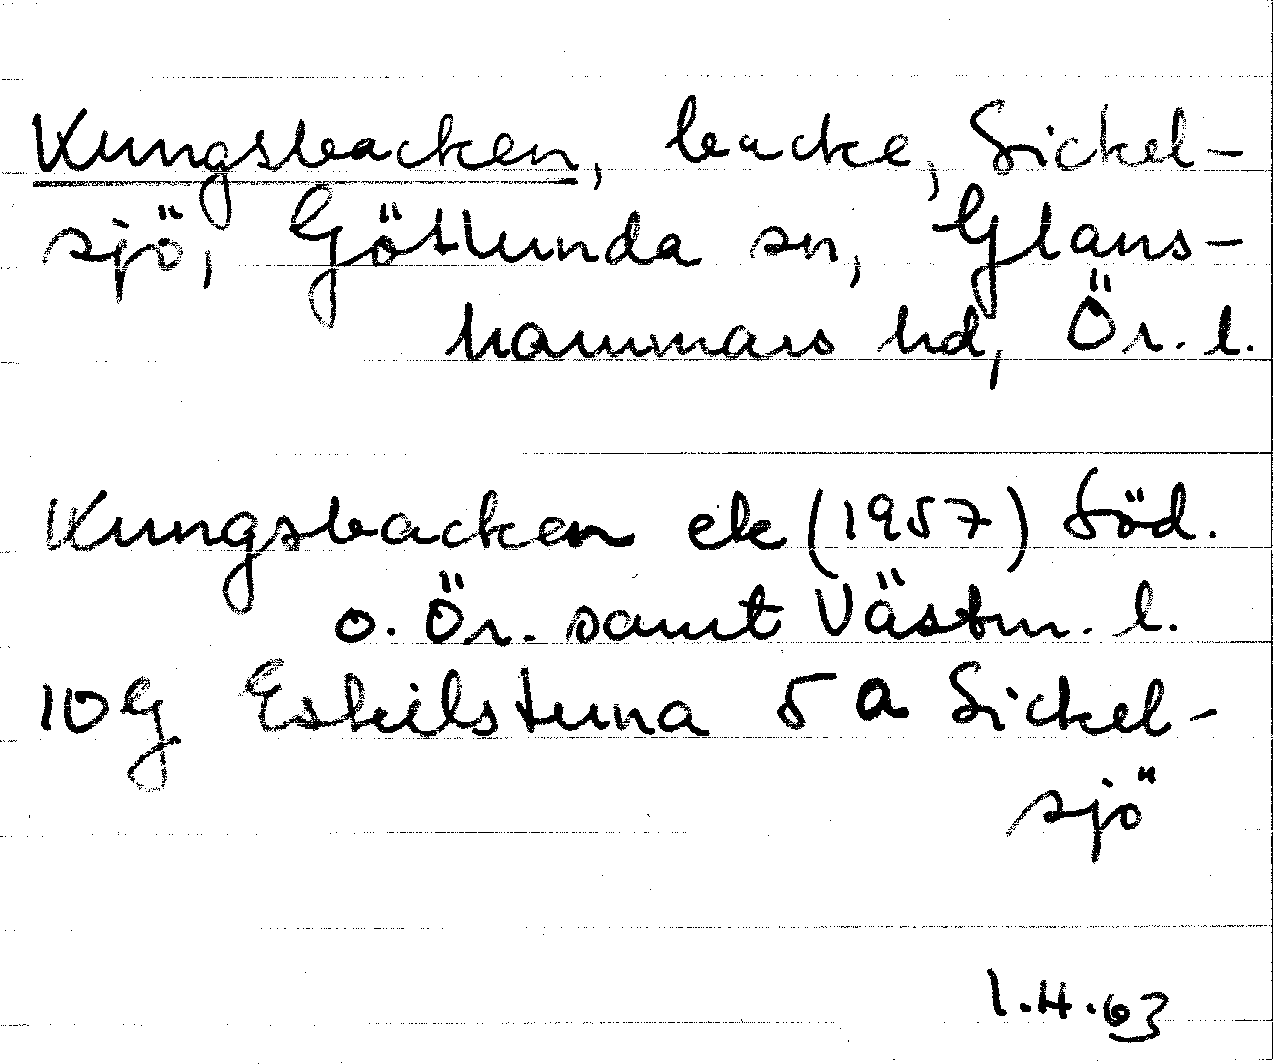 Kungsbacken, backe, Sickel-
sjö, Götlunda sn, Glans-
hammars hd, Ör. l.
Kungsbacken ek (1957) Söd.
o. Ör. samt Västm. l.
10 g Eskilstuna 5 a Sickel-
sjö
I.H.63